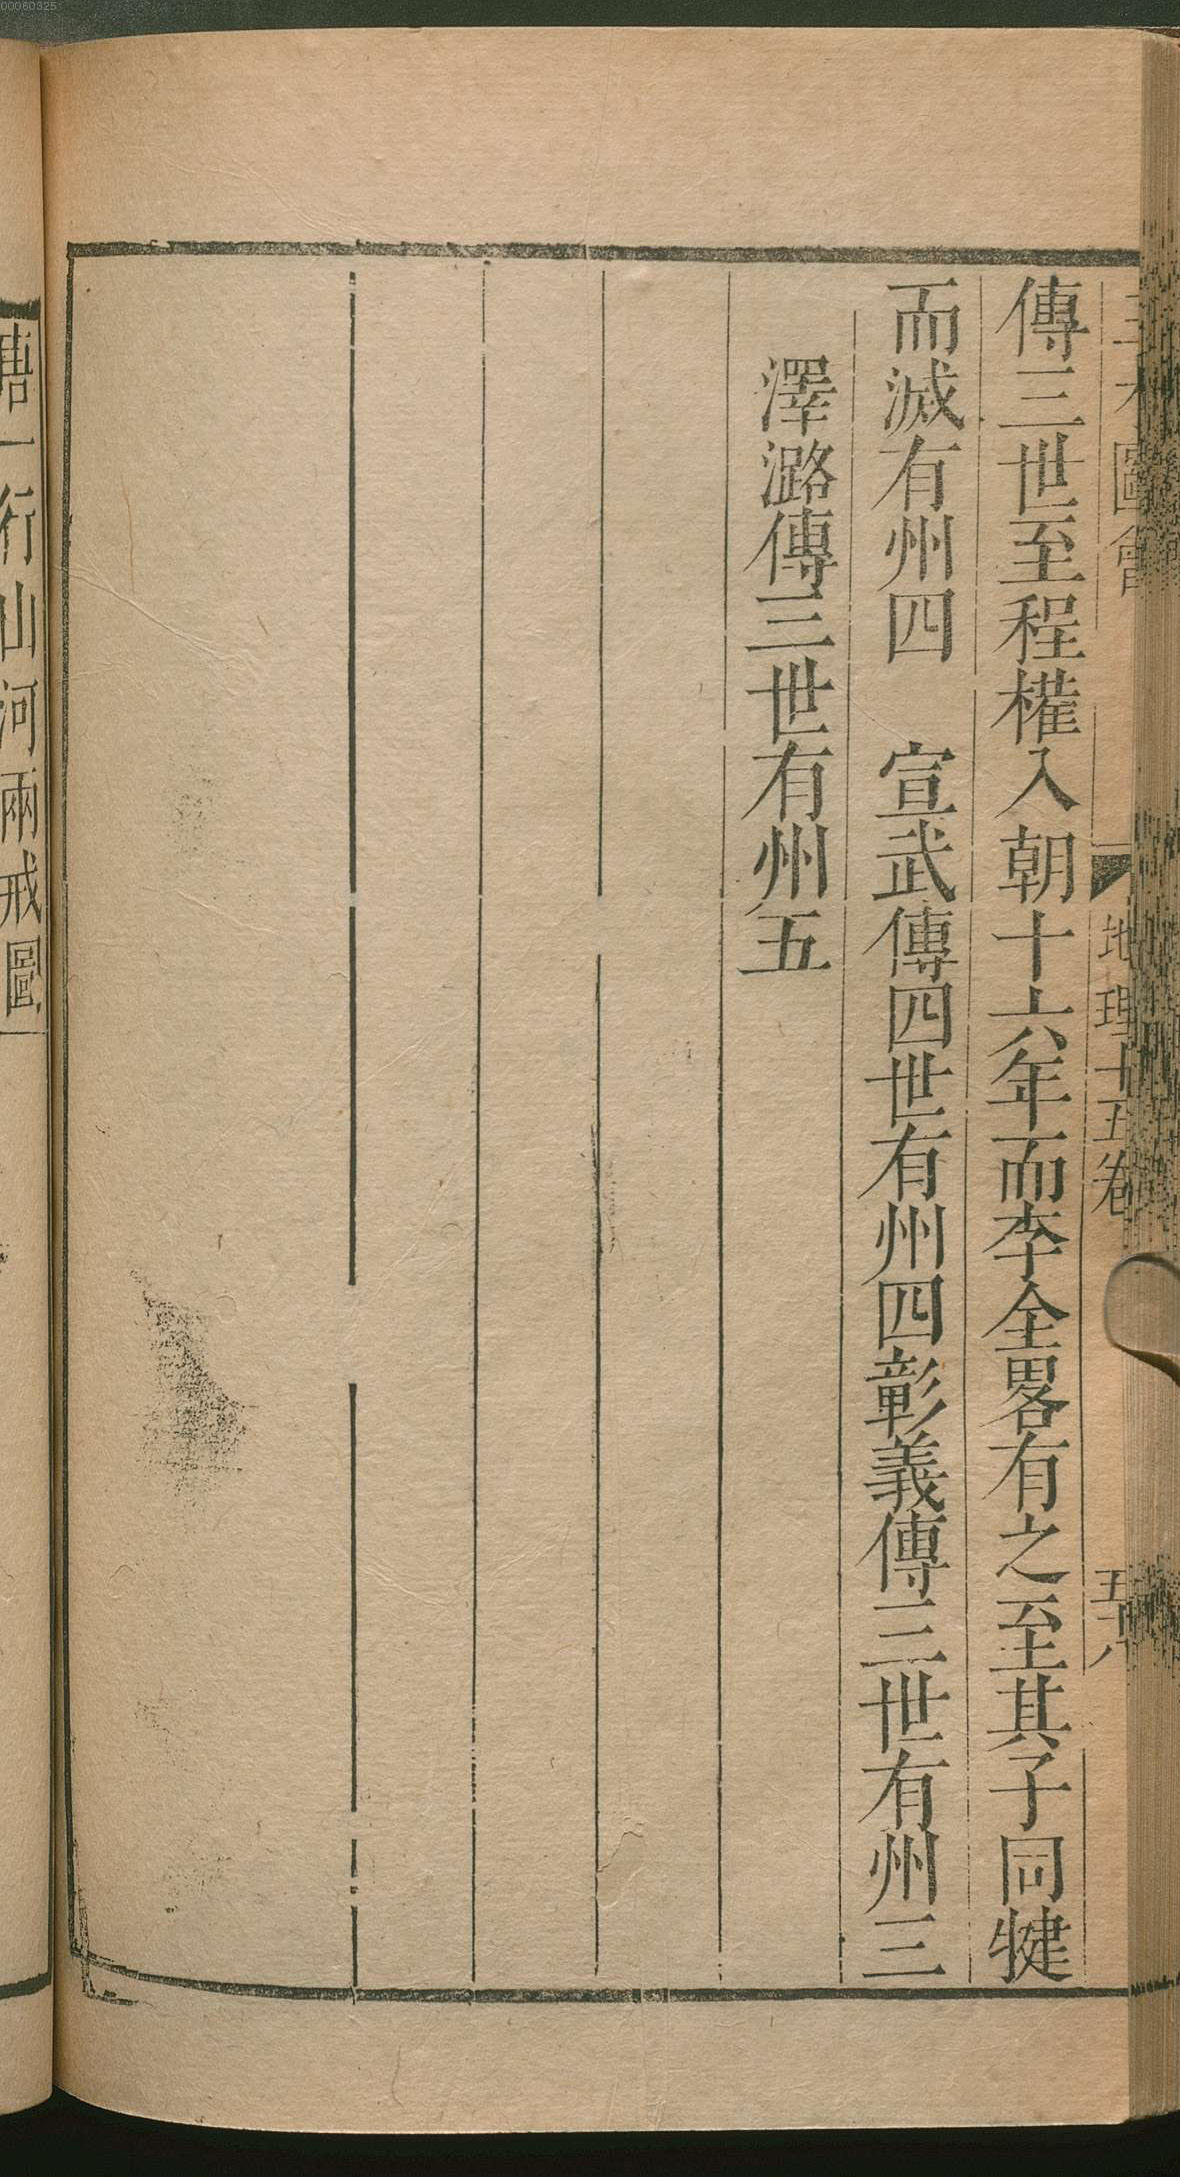 三才圖會
地理十五卷
五十八
傳三世至程權入朝十六年而李全畧有之至其子同犍
而滅有州四　宣武傳四世有州四彰義傳三世有州三
澤潞傳三世有州五
唐一行山河兩戒圖
00060325